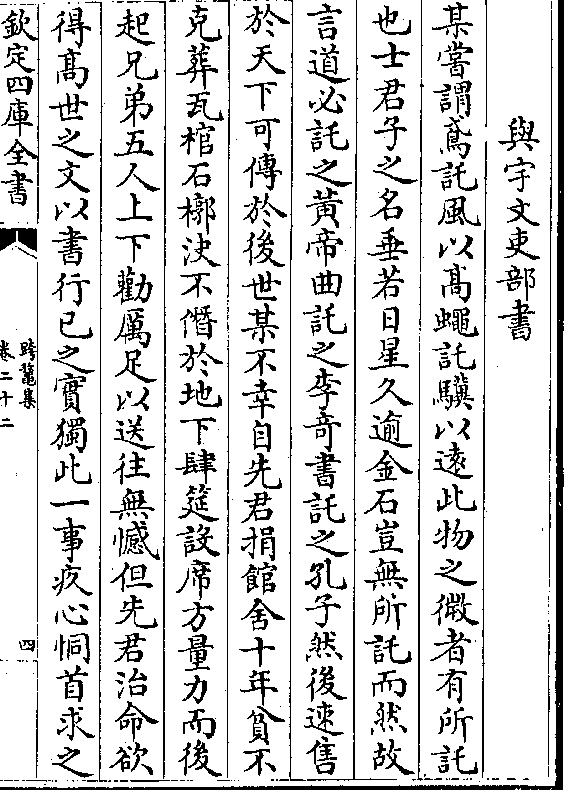 與宇文吏部書
某嘗謂鳶託風以髙蠅託驥以逺此物之微者有所託
也士君子之名垂若日星久逾金石豈無所託而然故
言道必託之黄帝曲託之李竒書託之孔子然後速售
於天下可傳於後世某不幸自先君捐館舍十年貧不
克葬瓦棺石槨決不僭於地下肆筵設席方量力而後
起兄弟五人上下勸厲足以送往無憾但先君治命欲
得髙世之文以書行已之實獨此一事疚心恫首求之
欽定四庫全書
跨鼇集
卷二十二
四